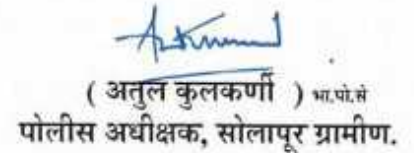 ( अतुल कुलकर्णी ) भा.पो.से
पोलीस अधीक्षक, सोलापूर ग्रामीण.